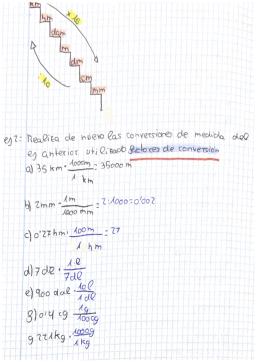 km
x 10
hm
dam
m
dm
cm
mm
: 10
ej 2: Realiza de nuevo las conversiones de medida del
ej anterior utilizado factores de conversión
a) 35 km · 1000m / 1 km = 35000 m
b) 2mm · 1m / 1000 mm = 2:1000=0'002
c) 0'27hm · 100m / 1 hm = 27
d) 7 dl · 1 l / 7dl
e) 900 dal · 10l / 1 dl
g) 0'4 cg · 1g / 100cg
g 221kg · 1000g / 1kg